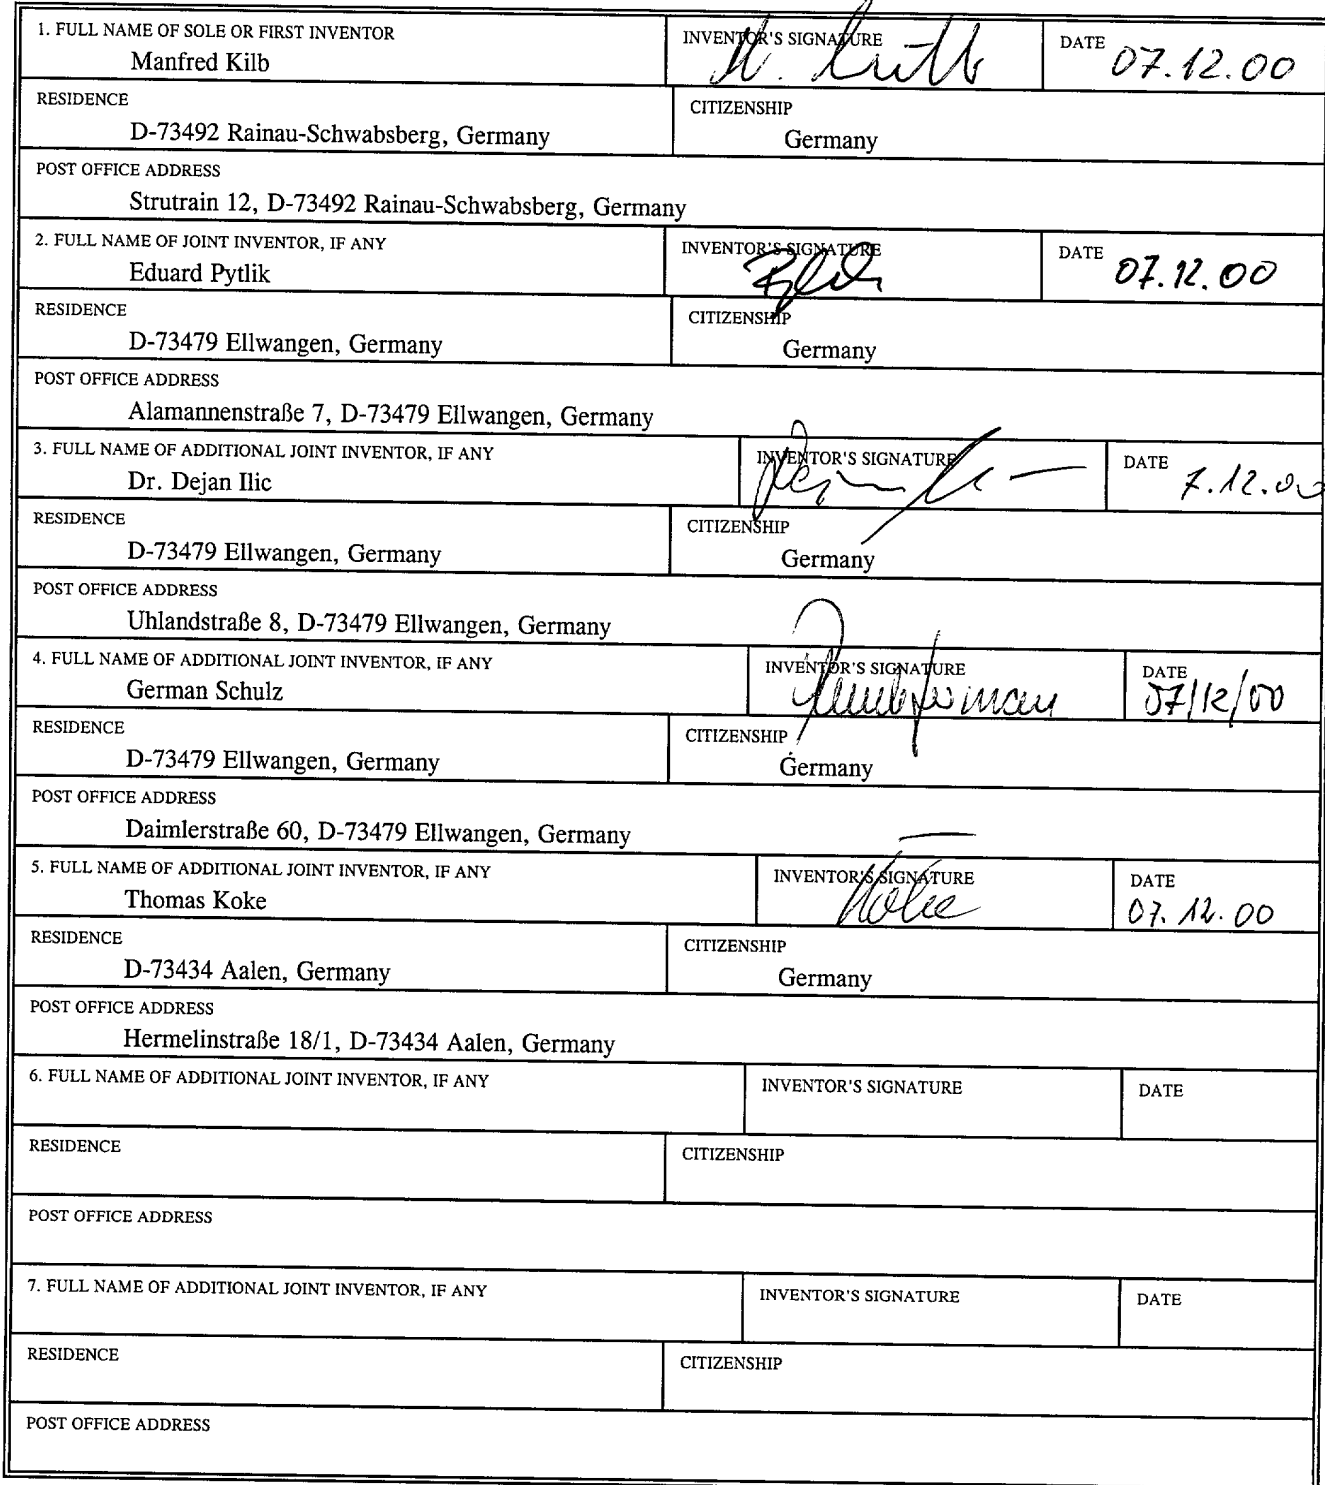 1. FULL NAME OF SOLE OR FIRST INVENTOR
Manfred Kilb
INVENTOR'S SIGNATURE
DATE 07.12.00
RESIDENCE
D-73492 Rainau-Schwabsberg, Germany
CITIZENSHIP
Germany
POST OFFICE ADDRESS
Strutrain 12, D-73492 Rainau-Schwabsberg, Germany
2. FULL NAME OF JOINT INVENTOR, IF ANY
Eduard Pytlik
INVENTOR'S SIGNATURE
DATE 07.12.00
RESIDENCE
D-73479 Ellwangen, Germany
CITIZENSHIP
Germany
POST OFFICE ADDRESS
Alamannenstraße 7, D-73479 Ellwangen, Germany
3. FULL NAME OF ADDITIONAL JOINT INVENTOR, IF ANY
Dr. Dejan Ilic
INVENTOR'S SIGNATURE
DATE 7.12.00
RESIDENCE
D-73479 Ellwangen, Germany
CITIZENSHIP
Germany
POST OFFICE ADDRESS
Uhlandstraße 8, D-73479 Ellwangen, Germany
4. FULL NAME OF ADDITIONAL JOINT INVENTOR, IF ANY
German Schulz
INVENTOR'S SIGNATURE
DATE
07/12/00
RESIDENCE
D-73479 Ellwangen, Germany
CITIZENSHIP
Germany
POST OFFICE ADDRESS
Daimlerstraße 60, D-73479 Ellwangen, Germany
5. FULL NAME OF ADDITIONAL JOINT INVENTOR, IF ANY
Thomas Koke
INVENTOR'S SIGNATURE
Koke
DATE
07.12.00
RESIDENCE
D-73434 Aalen, Germany
CITIZENSHIP
Germany
POST OFFICE ADDRESS
Hermelinstraße 18/1, D-73434 Aalen, Germany
6. FULL NAME OF ADDITIONAL JOINT INVENTOR, IF ANY
INVENTOR'S SIGNATURE
DATE
RESIDENCE
CITIZENSHIP
POST OFFICE ADDRESS
7. FULL NAME OF ADDITIONAL JOINT INVENTOR, IF ANY
INVENTOR'S SIGNATURE
DATE
RESIDENCE
CITIZENSHIP
POST OFFICE ADDRESS